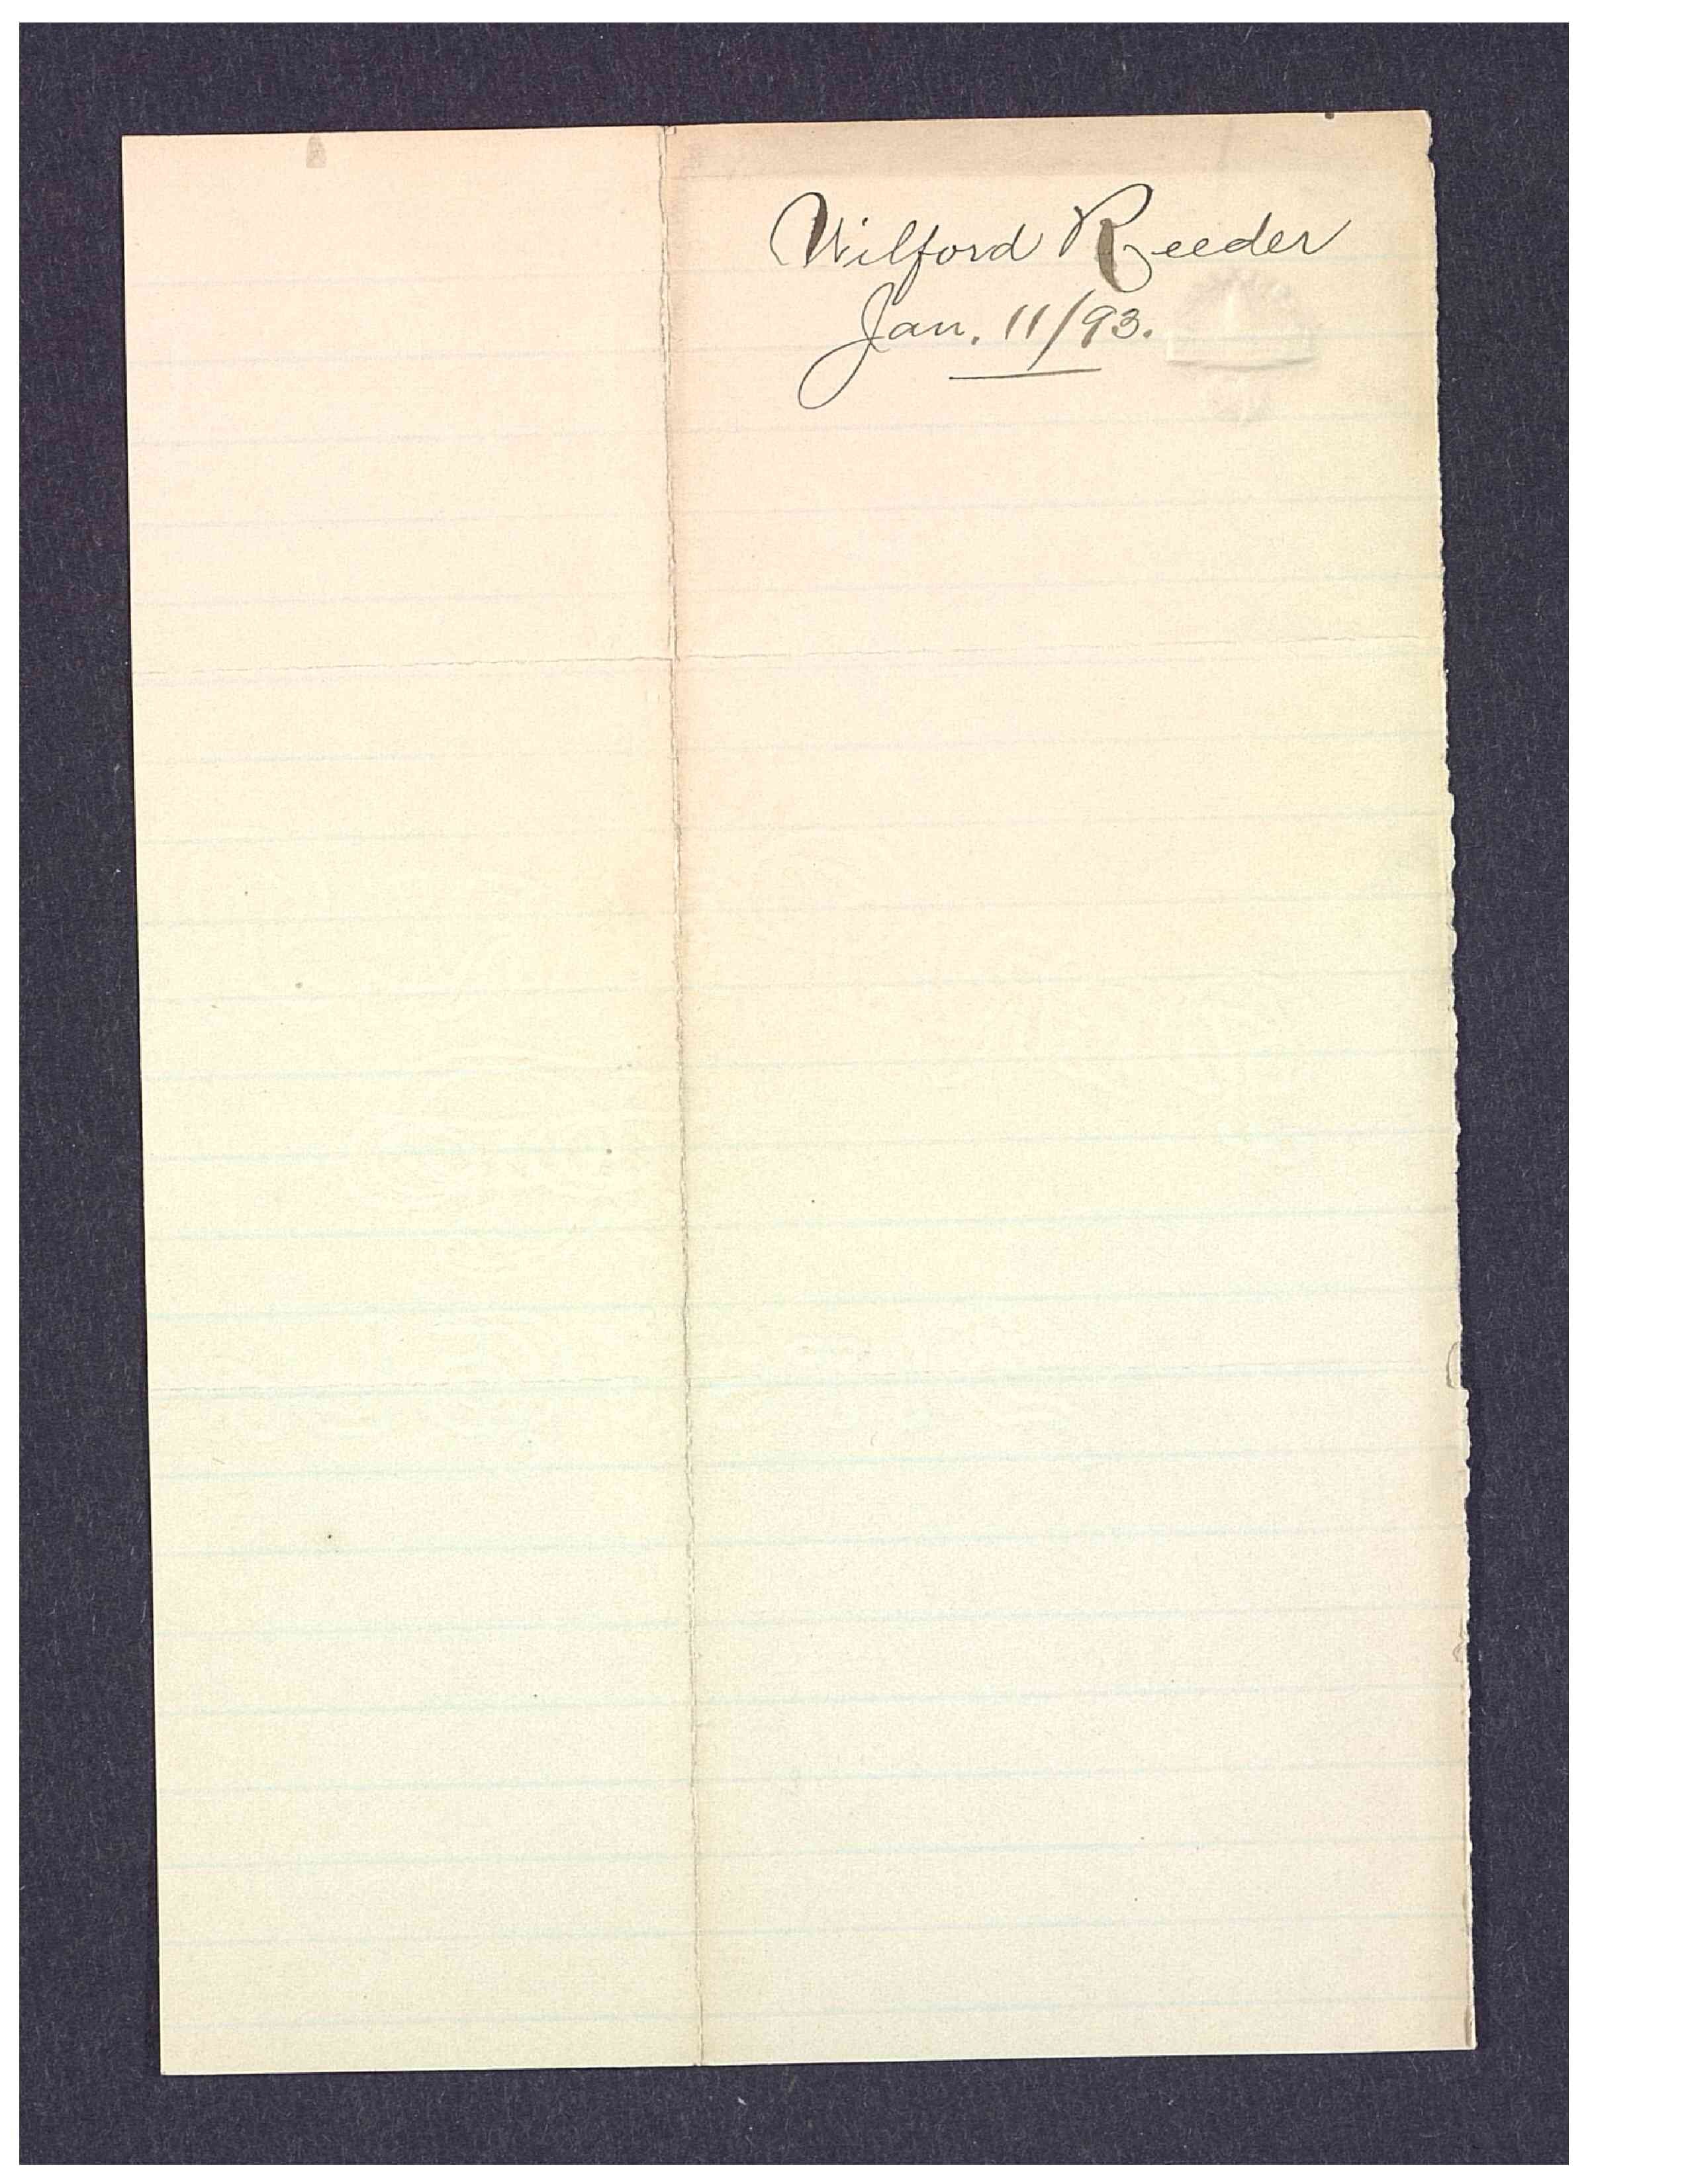 Wilford Reeder
Jan. 11/93.